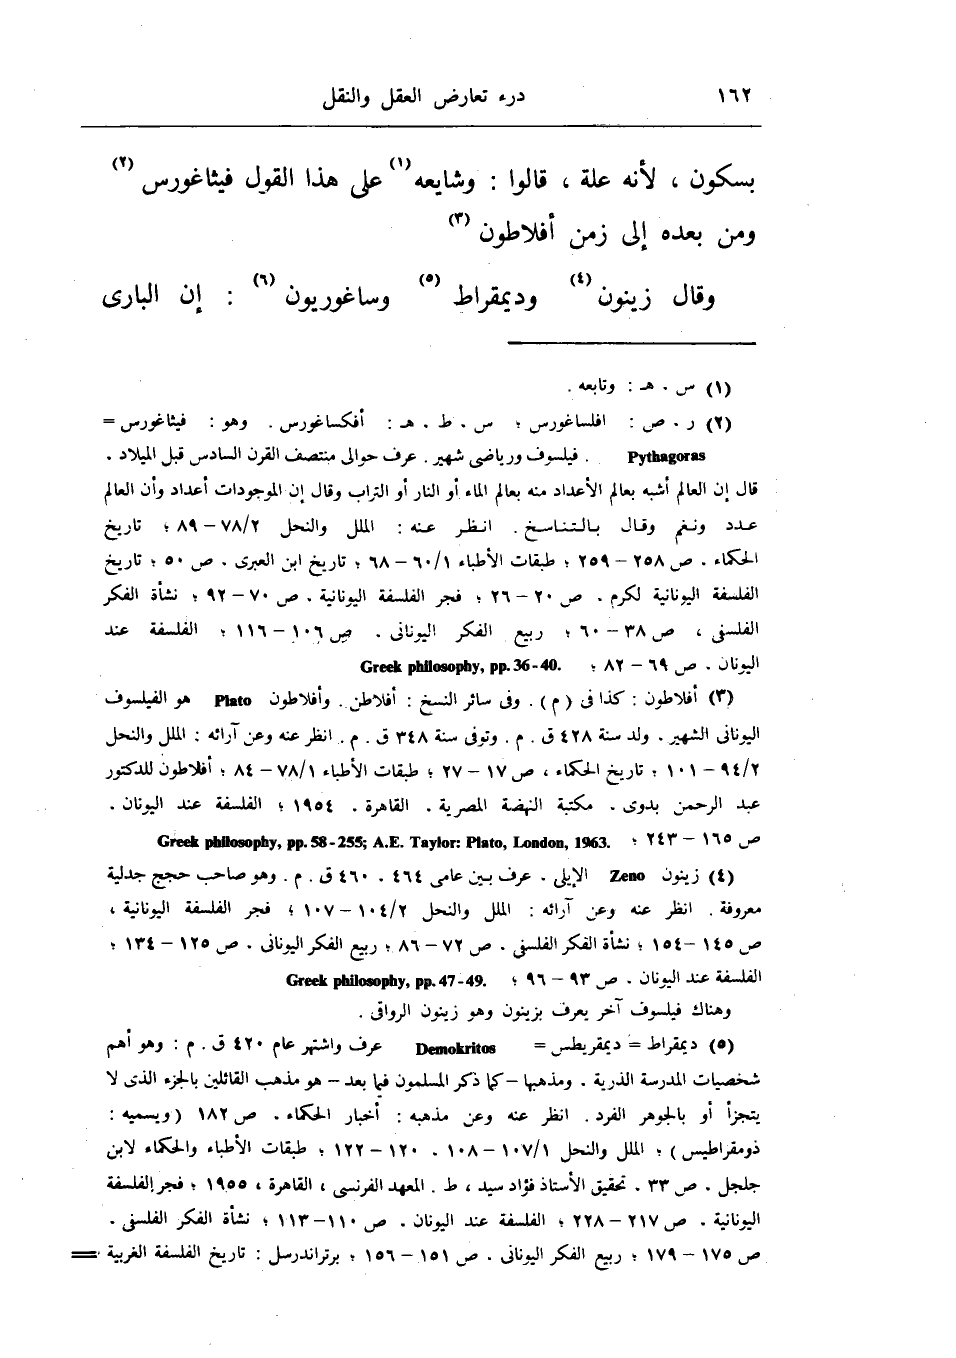 ١٦٢ درء تعارض العقل والنقل
بسكون ، لأنه علة ، قالوا : وشايعه(١) على هذا القول فيثاغورس(٢)
ومن بعده إلى زمن أفلاطون(٣)
وقال زينون(٤) وديمقراط(٥) وساغوريون(٦) : إن البارى
(١) س . هـ : وتابعه .
(٢) ر . ص : افلساغورس ؛ س . ط . هـ : أفكساغورس . وهو : فيثاغورس =
Pythagoras . فيلسوف ورياضى شهير . عرف حوالى منتصف القرن السادس قبل الميلاد .
قال إن العالم أشبه بعالم الأعداد منه بعالم الماء أو النار أو التراب وقال إن الموجودات أعداد وأن العالم
عدد ونغم وقال بالتناسخ . انظر عنه : الملل والنحل ٧٨/٢ – ٨٩ ؛ تاريخ
الحكماء . ص ٢٥٨ – ٢٥٩ ؛ طبقات الأطباء ٦٠/١ – ٦٨ ؛ تاريخ ابن العبرى . ص ٥٠ ؛ تاريخ
الفلسفة اليونانية لكرم . ص ٢٠ – ٢٦ ؛ فجر الفلسفة اليونانية . ص ٧٠ – ٩٢ ؛ نشأة الفكر
الفلسفى ، ص ٣٨ – ٦٠ ؛ ربيع الفكر اليونانى . ص ١٠٦ – ١١٦ ؛ الفلسفة عند
اليونان . ص ٦٩ – ٨٢ ؛ Greek philosophy, pp. 36-40.
(٣) أفلاطون : كذا فى ( م ) . وفى سائر النسخ : أفلاطن . وأفلاطون Plato هو الفيلسوف
اليونانى الشهير . ولد سنة ٤٢٨ ق . م . وتوفى سنة ٣٤٨ ق . م . انظر عنه وعن آرائه : الملل والنحل
٩٤/٢ – ١٠١ ؛ تاريخ الحكماء ، ص ١٧ – ٢٧ ؛ طبقات الأطباء ٧٨/١ – ٨٤ ؛ أفلاطون للدكتور
عبد الرحمن بدوى . مكتبة النهضة المصرية . القاهرة . ١٩٥٤ ؛ الفلسفة عند اليونان .
ص ١٦٥ – ٢٤٣ ؛ Greek philosophy, pp. 58-255; A.E. Taylor: Plato, London, 1963.
(٤) زينون Zeno الإيلى . عرف بين عامى ٤٦٤ . ٤٦٠ ق . م . وهو صاحب حجج جدلية
معروفة . انظر عنه وعن آرائه : الملل والنحل ١٠٤/٢ – ١٠٧ ؛ فجر الفلسفة اليونانية ،
ص ١٤٥ – ١٥٤ ؛ نشأة الفكر الفلسفى . ص ٧٢ – ٨٦ ؛ ربيع الفكر اليونانى . ص ١٢٥ – ١٣٤ ؛
الفلسفة عند اليونان . ص ٩٣ – ٩٦ ؛ Greek philosophy, pp. 47-49.
وهناك فيلسوف آخر يعرف بزينون وهو زينون الرواقى .
(٥) ديمقراط = ديمقريطس = Demokritos عرف واشتهر عام ٤٢٠ ق . م : وهو أهم
شخصيات المدرسة الذرية . ومذهبها – كما ذكر المسلمون فيما بعد – هو مذهب القائلين بالجزء الذى لا
يتجزأ أو بالجوهر الفرد . انظر عنه وعن مذهبه : أخبار الحكماء . ص ١٨٢ ( ويسميه :
ذومقراطيس ) ؛ الملل والنحل ١٠٧/١ – ١٠٨ . ١٢٠ – ١٢٢ ؛ طبقات الأطباء والحكماء لابن
جلجل . ص ٣٣ . تحقيق الأستاذ فؤاد سيد ، ط . المعهد الفرنسى ، القاهرة ، ١٩٥٥ ؛ فجر الفلسفة
اليونانية . ص ٢١٧ – ٢٢٨ ؛ الفلسفة عند اليونان . ص ١١٠ – ١١٣ ؛ نشأة الفكر الفلسفى .
ص ١٧٥ – ١٧٩ ؛ ربيع الفكر اليونانى . ص ١٥١ – ١٥٦ ؛ برتراندرسل : تاريخ الفلسفة الغربية =